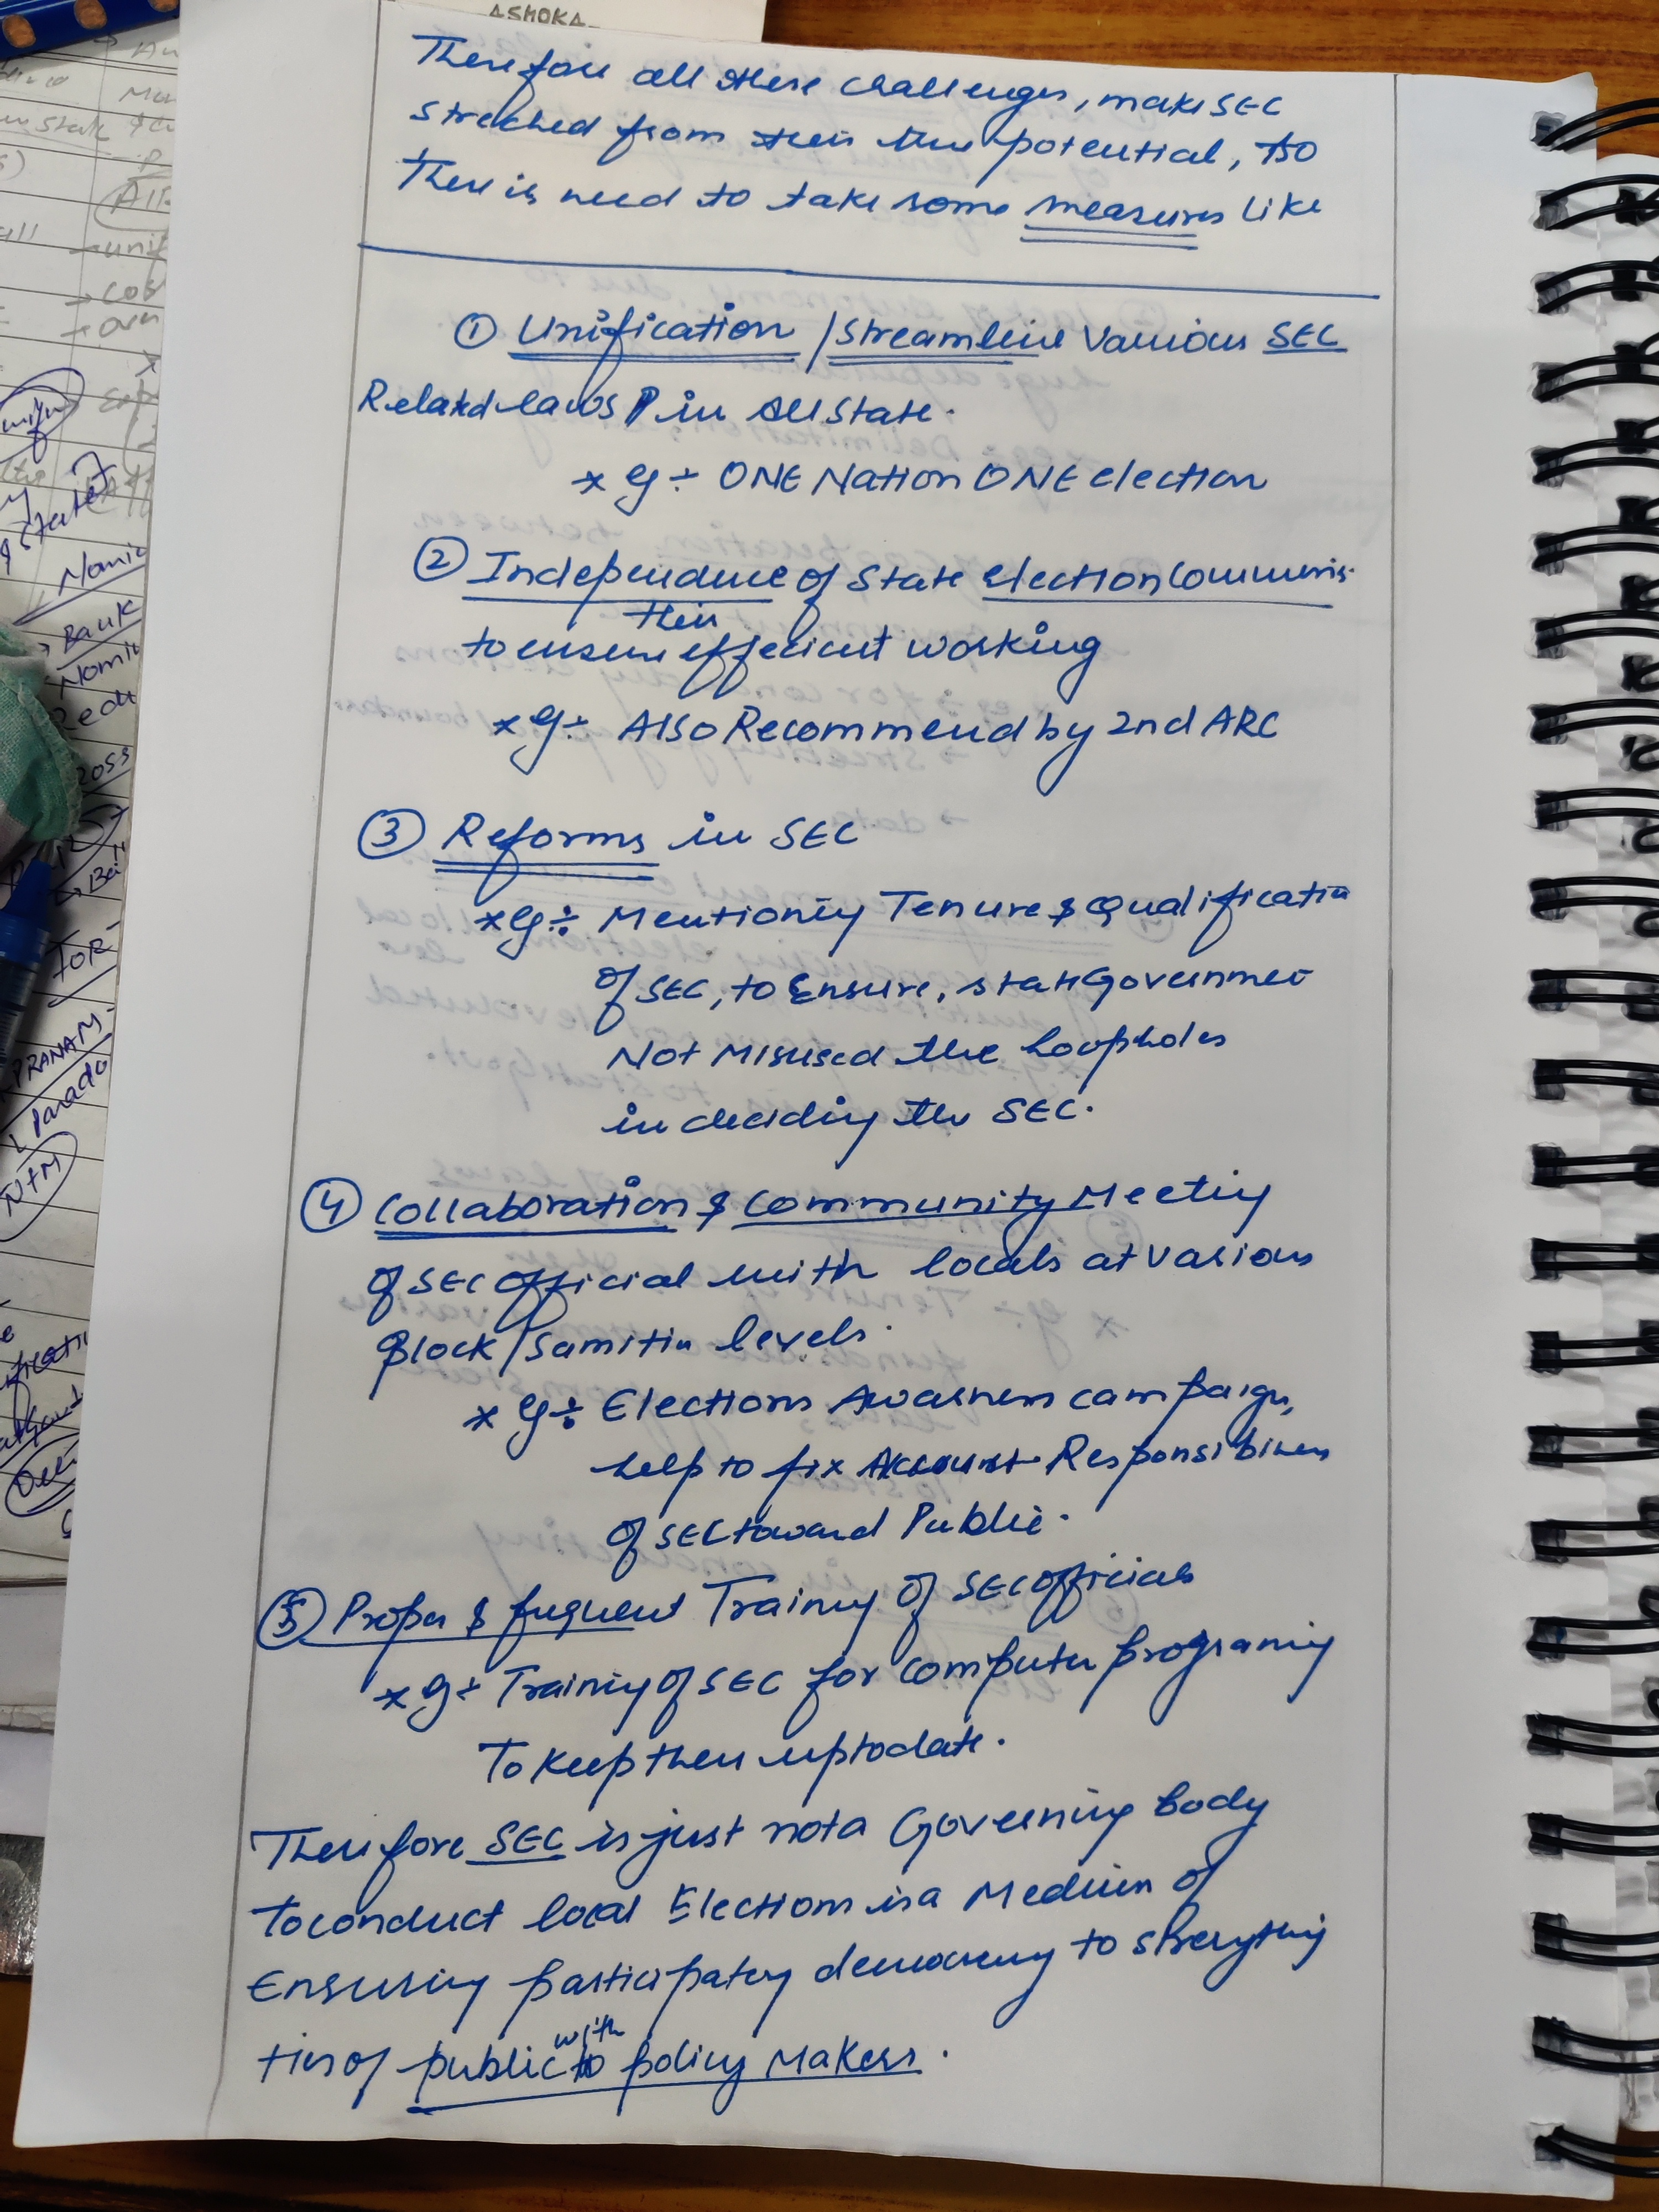 ASHOKA
Therefore all these challenges, make SEC
streched from their true potential, so
There is need to take some measures like
① Unification / Streamline Various SEC
Related laws in all State.
* eg ÷ ONE Nation ONE election
② Independence of State election Commis.
their
to ensure effecient working
* eg ÷ Also Recommend by 2nd ARC
③ Reforms in SEC
* eg ÷ Mentioning Tenure & Qualification
of SEC, to Ensure, state Governmet
Not Misused the Loopholes
in deciding the SEC.
④ Collaboration & Community Meeting
of SEC official with locals at various
Block / Samitis levels.
* eg ÷ Elections Awarness campaign,
help to fix Responsibilities
of SEC toward Public.
⑤ Proper & frequent Training of SEC officials
* eg ÷ Training of SEC for computer programing
To keep them uptodate.
Therefore SEC is just not a Governing body
to conduct local Elections is a Medium of
Ensuring participatory democracy to
with
ties of public policy Makers.
Bank
Nomi
Redu
FOR
PRANAM
Parado
N+M